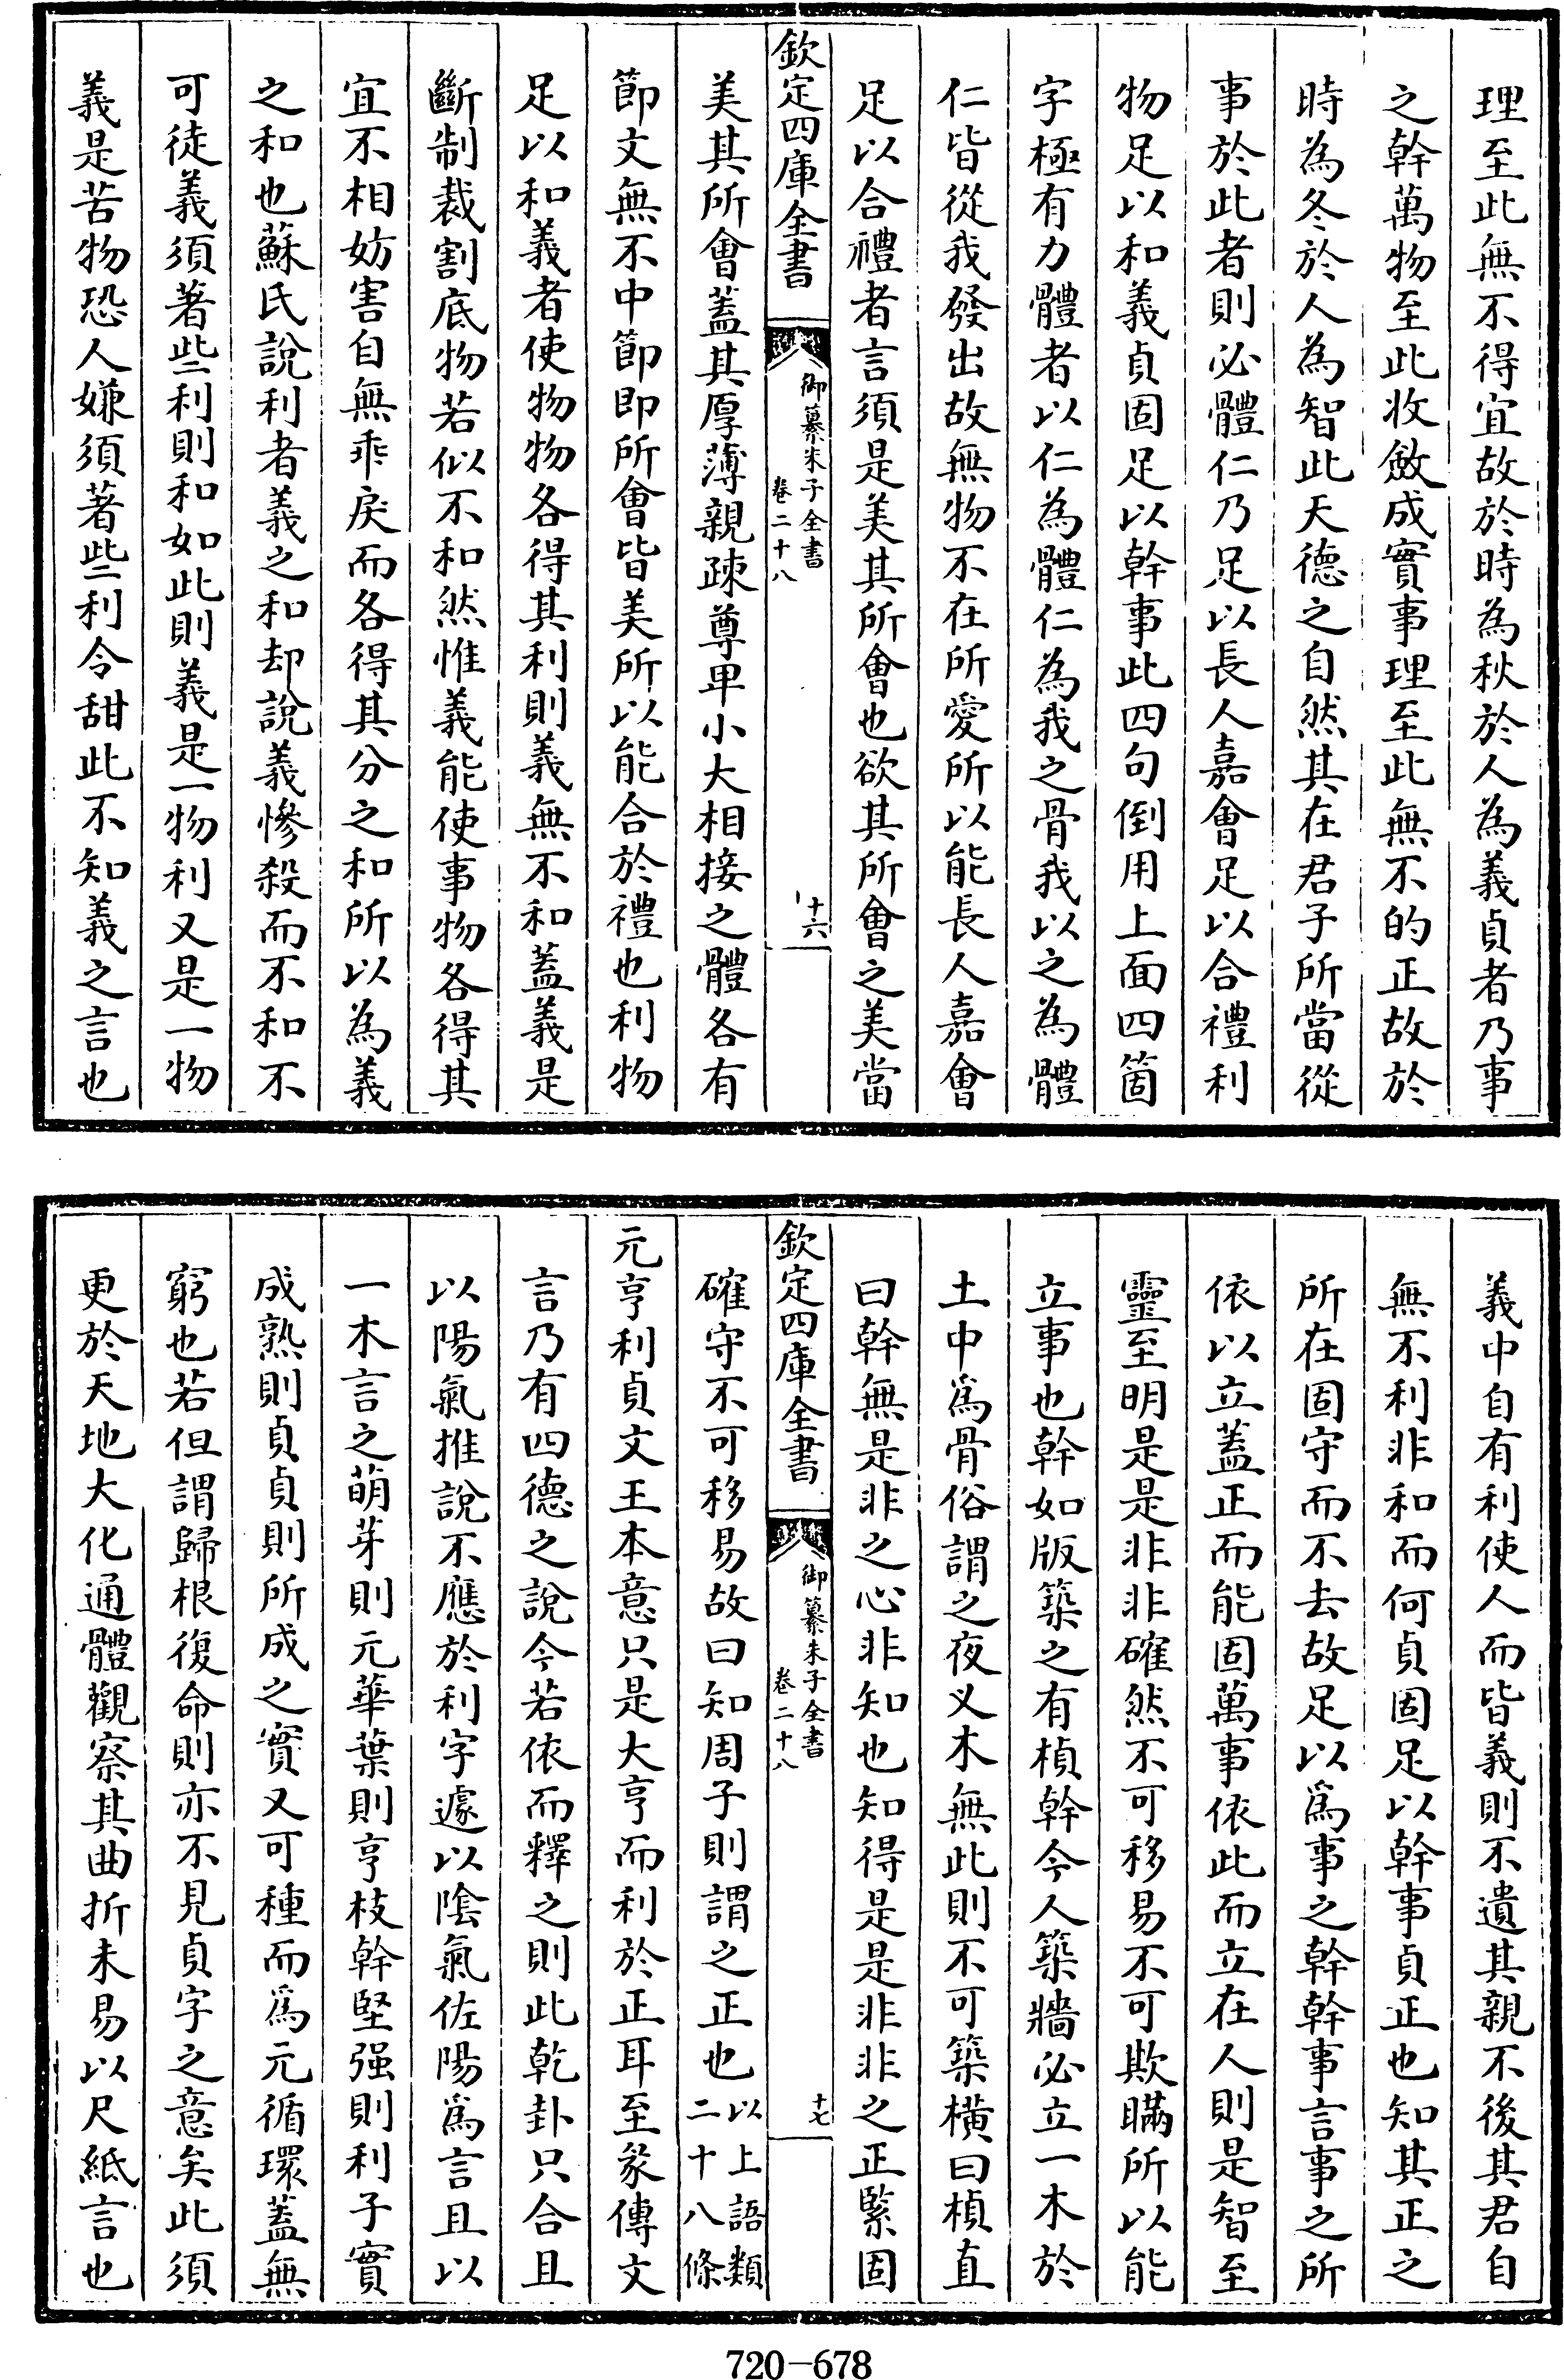 理至此無不得宜故於時為秋於人為義貞者乃事
之幹萬物至此收斂成實事理至此無不的正故於
時為冬於人為智此天德之自然其在君子所當從
事於此者則必體仁乃足以長人嘉會足以合禮利
物足以和義貞固足以幹事此四句倒用上面四箇
字極有力體者以仁為體仁為我之骨我以之為體
仁皆從我發出故無物不在所愛所以能長人嘉會
足以合禮者言須是美其所會也欲其所會之美當
欽定四庫全書
御纂朱子全書
卷二十八
十六
美其所會蓋其厚薄親疎尊卑小大相接之體各有
節文無不中節即所會皆美所以能合於禮也利物
足以和義者使物物各得其利則義無不和蓋義是
斷制裁割底物若似不和然惟義能使事物各得其
宜不相妨害自無乖戾而各得其分之和所以為義
之和也蘇氏說利者義之和却說義慘殺而不和不
可徒義須著些利則和如此則義是一物利又是一物
義是苦物恐人嫌須著些利令甜此不知義之言也
義中自有利使人而皆義則不遺其親不後其君自
無不利非和而何貞固足以幹事貞正也知其正之
所在固守而不去故足以爲事之幹幹事言事之所
依以立蓋正而能固萬事依此而立在人則是智至
靈至明是是非非確然不可移易不可欺瞞所以能
立事也幹如版築之有楨幹今人築牆必立一木於
土中爲骨俗謂之夜义木無此則不可築橫曰楨直
曰幹無是非之心非知也知得是是非非之正緊固
欽定四庫全書
御纂朱子全書
卷二十八
十七
確守不可移易故曰知周子則謂之正也以上語類
二十八條
元亨利貞文王本意只是大亨而利於正耳至彖傳文
言乃有四德之說今若依而釋之則此乾卦只合且
以陽氣推說不應於利字遽以陰氣佐陽爲言且以
一木言之萌芽則元華葉則亨枝幹堅强則利子實
成熟則貞貞則所成之實又可種而爲元循環蓋無
窮也若但謂歸根復命則亦不見貞字之意矣此須
更於天地大化通體觀察其曲折未易以尺紙言也
720-678